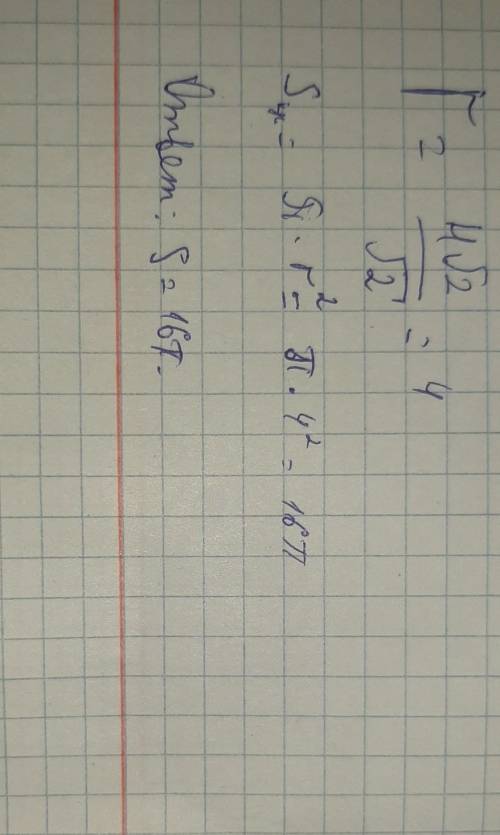 r = 4√2/√2 = 4
Sк = π · r² = π · 4² = 16π
Ответ: S = 16π.